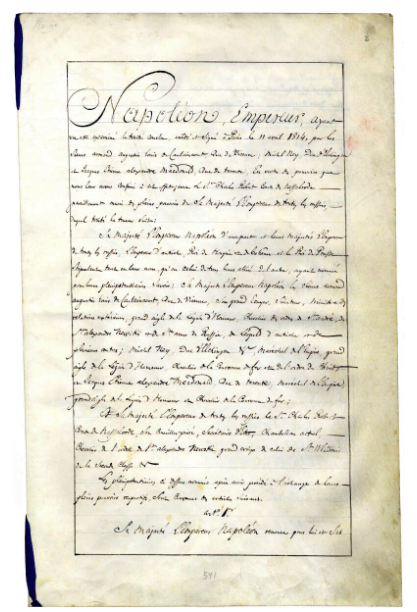 Napoléon, Empereur, ayant
vu et examiné le traité conclu, arrêté et signé à Paris le 11 avril 1814, par les
Sieurs Armand Augustin Louis de Caulaincourt, Duc de Vicence, Michel Ney, Duc d'Elchingen
et Jacques Etienne Alexandre Macdonald, Duc de Tarente, en vertu des pouvoirs que
nous leur avons et Charles Robert Comte de Nesselrode
muni de pleins pouvoirs de Sa Majesté l'Empereur de toutes les Russies,
duquel traité la teneur suit:
Sa Majesté l'Empereur Napoléon d'une part et leurs Majestés l'Empereur
de toutes les Russies, l'Empereur d'Autriche, Roi de Hongrie et de Bohême et le Roi de Prusse
stipulant tant en leur nom, qu'en celui de tous leurs alliés de l'autre, ayant nommé
pour leurs plénipotentiaires savoir: Sa Majesté l'Empereur Napoléon les Sieurs Armand
Augustin Louis de Caulaincourt, Duc de Vicence, Grand Ecuyer, Sénateur, Ministre des
relations extérieures, grand aigle de la Légion d'Honneur, Chevalier des ordres de St. André, de
St. Alexandre Newski de Ste. Anne de Russie, de Léopold d'Autriche
plusieurs ordres; Michel Ney, Duc d'Elchingen Maréchal de l'Empire, grand
aigle de la Légion d'Honneur, Chevalier de la Couronne de fer et de l'ordre
Jacques Etienne Alexandre Macdonald, Duc de Tarente, Maréchal de l'Empire
grand aigle de la Légion d'Honneur et Chevalier de la Couronne de fer;
Et Sa Majesté l'Empereur de toutes les Russies le Sr. Charles Robert
Comte de Nesselrode, Chambellan actuel
Chevalier de l'ordre de St. Alexandre Newski grand croix de celui de St. Wladimir
de la Seconde Classe
Les plénipotentiaires ci-dessus nommés après avoir procédé à l'échange de leurs
pleins pouvoirs respectifs, sont convenus des articles suivants.
Art. 1er
Sa Majesté l'Empereur Napoléon renonce pour lui et Ses
541